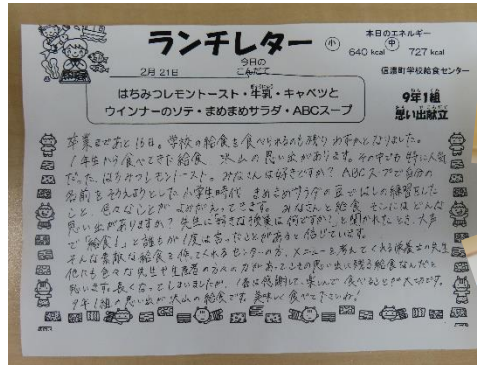 ランチレター
小 中
本日のエネルギー
640 kcal 727 kcal
2月 21日
今日の
こんだて
信濃町学校給食センター
はちみつレモントースト・牛乳・キャベツと
ウインナーのソテ・まめまめサラダ・ABCスープ
9年1組
思い出献立
卒業まであと16日。学校の給食を食べられるのも残りわずかとなりました。
1年生から食べてきた給食、沢山の思い出があります。その中でも特に人気
だった、はちみつレモントースト。みなさんは好きですか? ABCスープで自分の
名前をそろえようとした小学生時代、まめまめサラダの豆ではしの練習をした
こと、色々なことがよみがえってきます。 みなさんと給食、そこにはどんな
思い出がありますか? 先生に「好きな授業は何ですか?」と聞かれたとき、大声
で「給食!」と誰もが1度は言ったことがあると信じています。
そんな素敵な給食を作ってくれるセンターの方、メニューを考えてくれる栄養士の先生
他にも色々な先生や生産者の方々の力があってこその思い出に残る給食なんだと
思います。長くなってしまいましたが、1番は感謝して、楽しんで食べることが大切です。
9年1組の思い出が沢山の給食です。美味しく食べて下さいね!